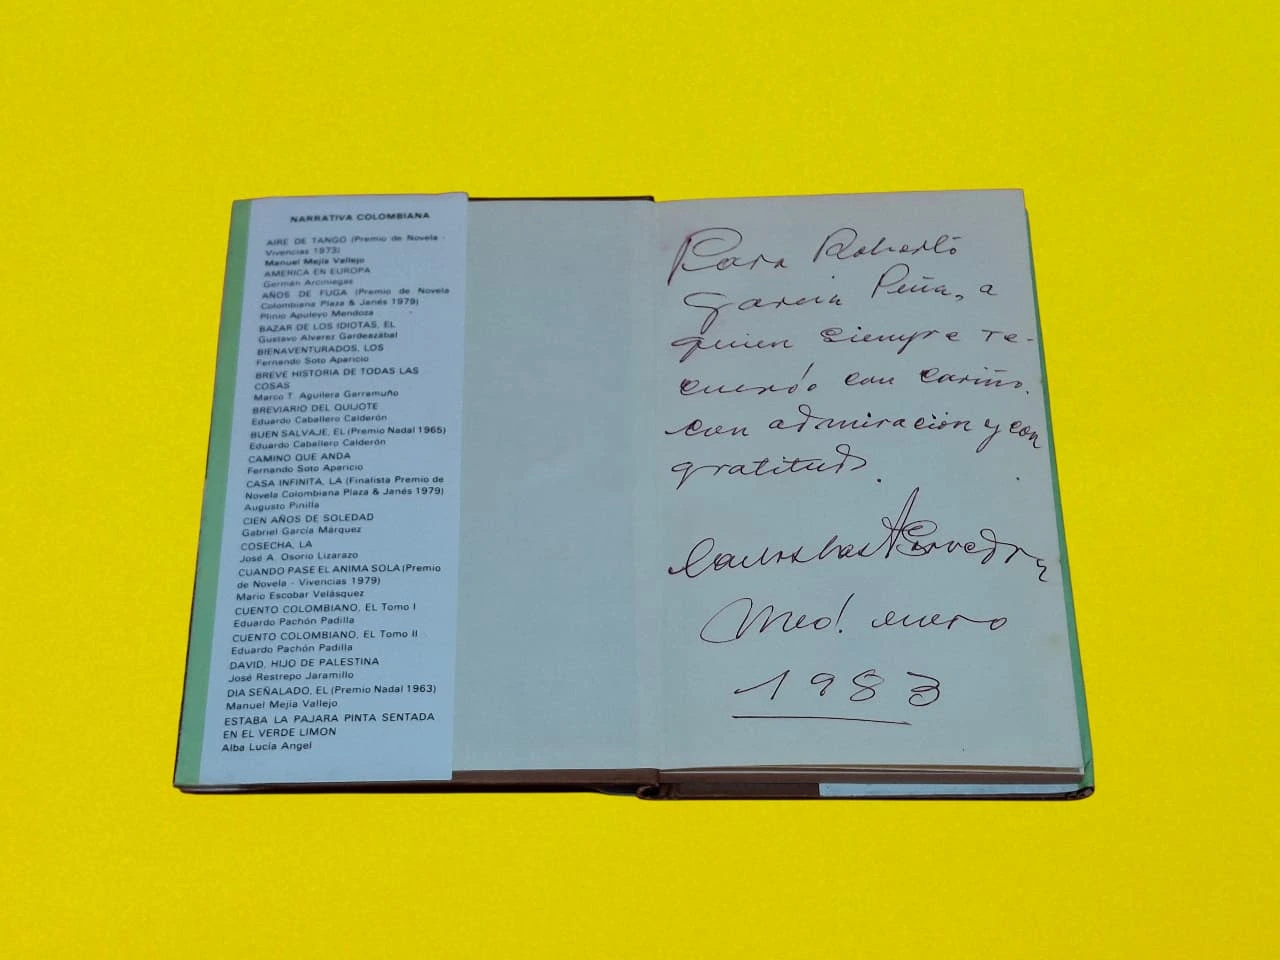 NARRATIVA COLOMBIANA
AIRE DE TANGO (Premio de Novela -
Vivencias 1973)
Manuel Mejía Vallejo
AMERICA EN EUROPA
Germán Arciniegas
AÑOS DE FUGA (Premio de Novela
Colombiana Plaza & Janés 1979)
Plinio Apuleyo Mendoza
BAZAR DE LOS IDIOTAS, EL
Gustavo Alvarez Gardeazábal
BIENAVENTURADOS, LOS
Fernando Soto Aparicio
BREVE HISTORIA DE TODAS LAS
COSAS
Marco T. Aguilera Garramuño
BREVIARIO DEL QUIJOTE
Eduardo Caballero Calderón
BUEN SALVAJE, EL (Premio Nadal 1965)
Eduardo Caballero Calderón
CAMINO QUE ANDA
Fernando Soto Aparicio
CASA INFINITA, LA (Finalista Premio de
Novela Colombiana Plaza & Janés 1979)
Augusto Pinilla
CIEN AÑOS DE SOLEDAD
Gabriel García Márquez
COSECHA, LA
José A. Osorio Lizarazo
CUANDO PASE EL ANIMA SOLA (Premio
de Novela - Vivencias 1979)
Mario Escobar Velásquez
CUENTO COLOMBIANO, EL Tomo I
Eduardo Pachón Padilla
CUENTO COLOMBIANO, EL Tomo II
Eduardo Pachón Padilla
DAVID, HIJO DE PALESTINA
José Restrepo Jaramillo
DIA SEÑALADO, EL (Premio Nadal 1963)
Manuel Mejía Vallejo
ESTABA LA PAJARA PINTA SENTADA
EN EL VERDE LIMON
Alba Lucía Angel
Para Roberto
García Peña, a
quien siempre re-
cuerdo con cariño.
con admiración y con
gratitud.
Med. enero
1983